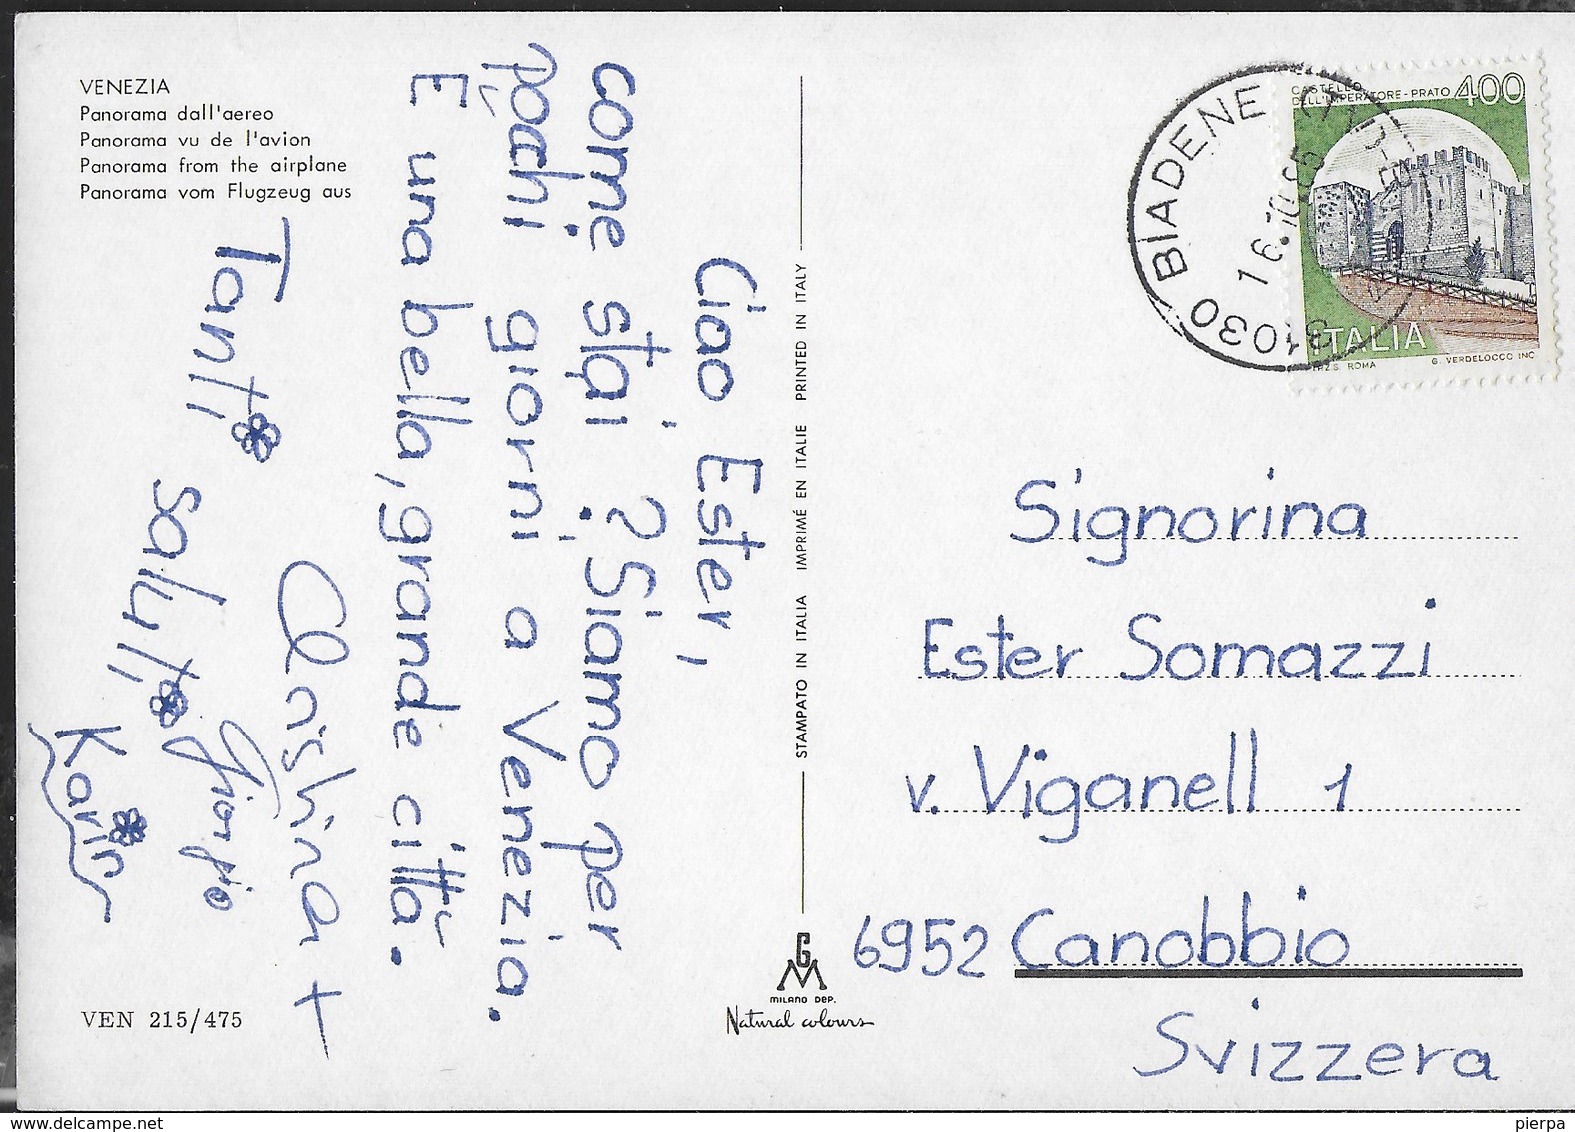 VENEZIA
Panorama dall'aereo
Panorama vu de l'avion
Panorama from the airplane
Panorama vom Flugzeug aus
Ciao, Ester,
come stai? Siamo per
pochi giorni a Venezia.
È una bella, grande città.
Tanti
saluti
Giorgio
Karin
VEN 215/475
STAMPATO IN ITALIA IMPRIMÉ EN ITALIE PRINTED IN ITALY
GM
MILANO DEP.
Natural colours
31030 BIADENE
CASTELLO
DELL'IMPERATORE-PRATO 400
ITALIA
I.P.Z.S. ROMA G. VERDELOCCO INC
Signorina
Ester Somazzi
v. Viganell 1
6952 Canobbio
Svizzera
pierpa